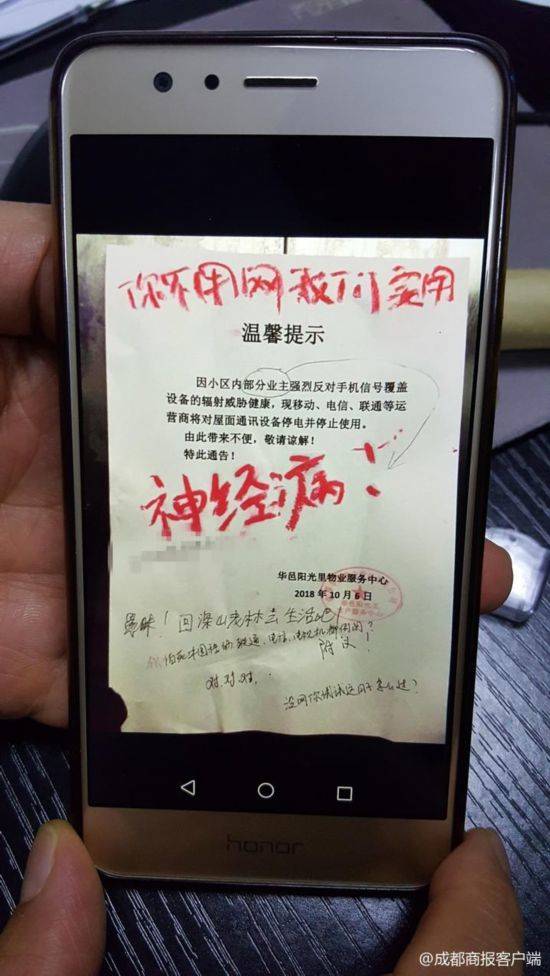 你不用网我们要用
温馨提示
因小区内部分业主强烈反对手机信号覆盖
设备的辐射威胁健康，现移动、电信、联通等运
营商将对屋面通讯设备停电并停止使用。
由此带来不便，敬请谅解！
特此通告！
神经病！
华邑阳光里物业服务中心
2018 年 10 月 6 日
愚昧！回深山老林去生活吧
附议！
对.对.对.
没网你试试这日子怎么过？
honor
@成都商报客户端